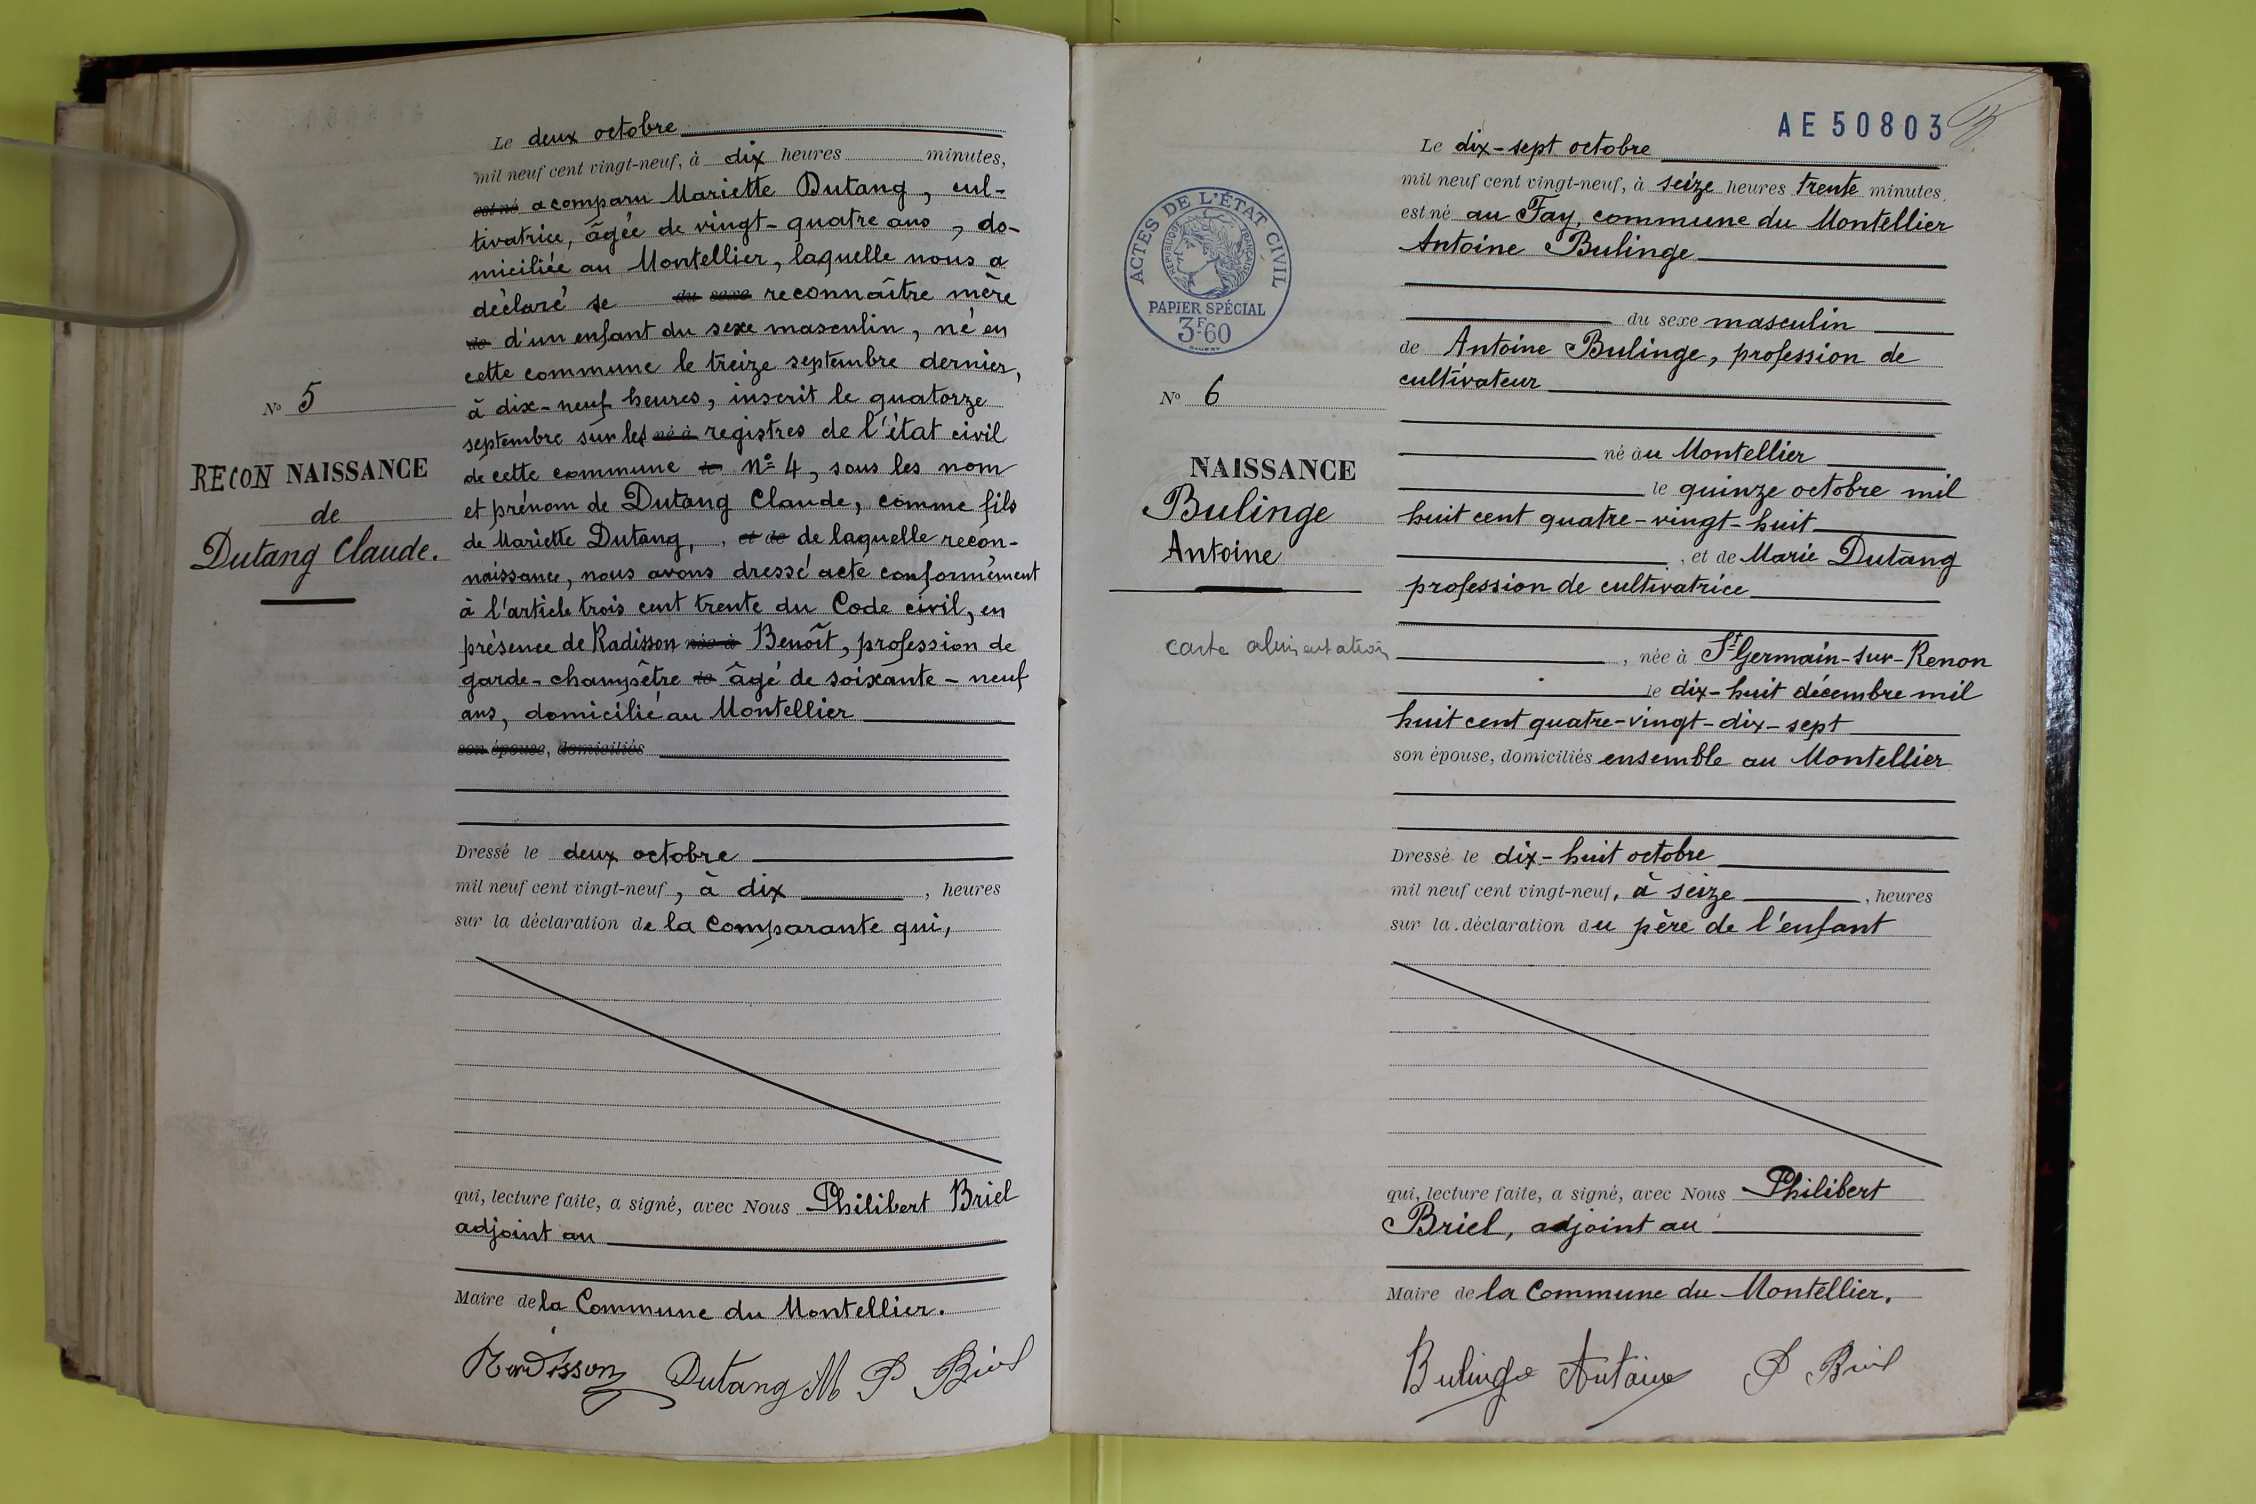 Le deux octobre
mil neuf cent vingt-neuf, à dix heures minutes,
est né a comparu Mariette Dutang, cul-
tivatrice, âgée de vingt-quatre ans, do-
miciliée au Montellier, laquelle nous a
déclaré se du sexe reconnaître mère
de d'un enfant du sexe masculin, né en
cette commune le treize septembre dernier,
à dix-neuf heures, inscrit le quatorze
septembre sur les né à registres de l'état civil
de cette commune le No 4, sous les nom
et prénom de Dutang Claude, comme fils
de Mariette Dutang, , et de de laquelle recon-
naissance, nous avons dressé acte conformément
à l'article trois cent trente du Code civil, en
présence de Radisson née à Benoît, profession de
garde-champêtre le âgé de soixante-neuf
ans, domicilié au Montellier
son épouse, domiciliés
No 5
RECONNAISSANCE
de
Dutang Claude.
Dressé le deux octobre
mil neuf cent vingt-neuf, à dix , heures
sur la déclaration de la Comparante qui,
qui, lecture faite, a signé, avec Nous Philibert Briel
adjoint au
Maire de la Commune du Montellier.
Radisson Dutang M P Briel
AE 50803
Le dix-sept octobre
mil neuf cent vingt-neuf, à seize heures trente minutes,
est né au Fay, commune du Montellier
Antoine Bulinge
du sexe masculin
de Antoine Bulinge, profession de
cultivateur
né au Montellier
le quinze octobre mil
huit cent quatre-vingt-huit
, et de Marie Dutang
profession de cultivatrice
, née à St Germain-sur-Renon
le dix-huit décembre mil
huit cent quatre-vingt-dix-sept
son épouse, domiciliés ensemble au Montellier
ACTES DE L'ÉTAT CIVIL
RÉPUBLIQUE FRANÇAISE
PAPIER SPÉCIAL
3F.60
No 6
NAISSANCE
Bulinge
Antoine
carte alimentation
Dressé le dix-huit octobre
mil neuf cent vingt-neuf, à seize , heures
sur la déclaration du père de l'enfant
qui, lecture faite, a signé, avec Nous Philibert
Briel, adjoint au
Maire de la Commune du Montellier.
Bulinge Antoine P Briel